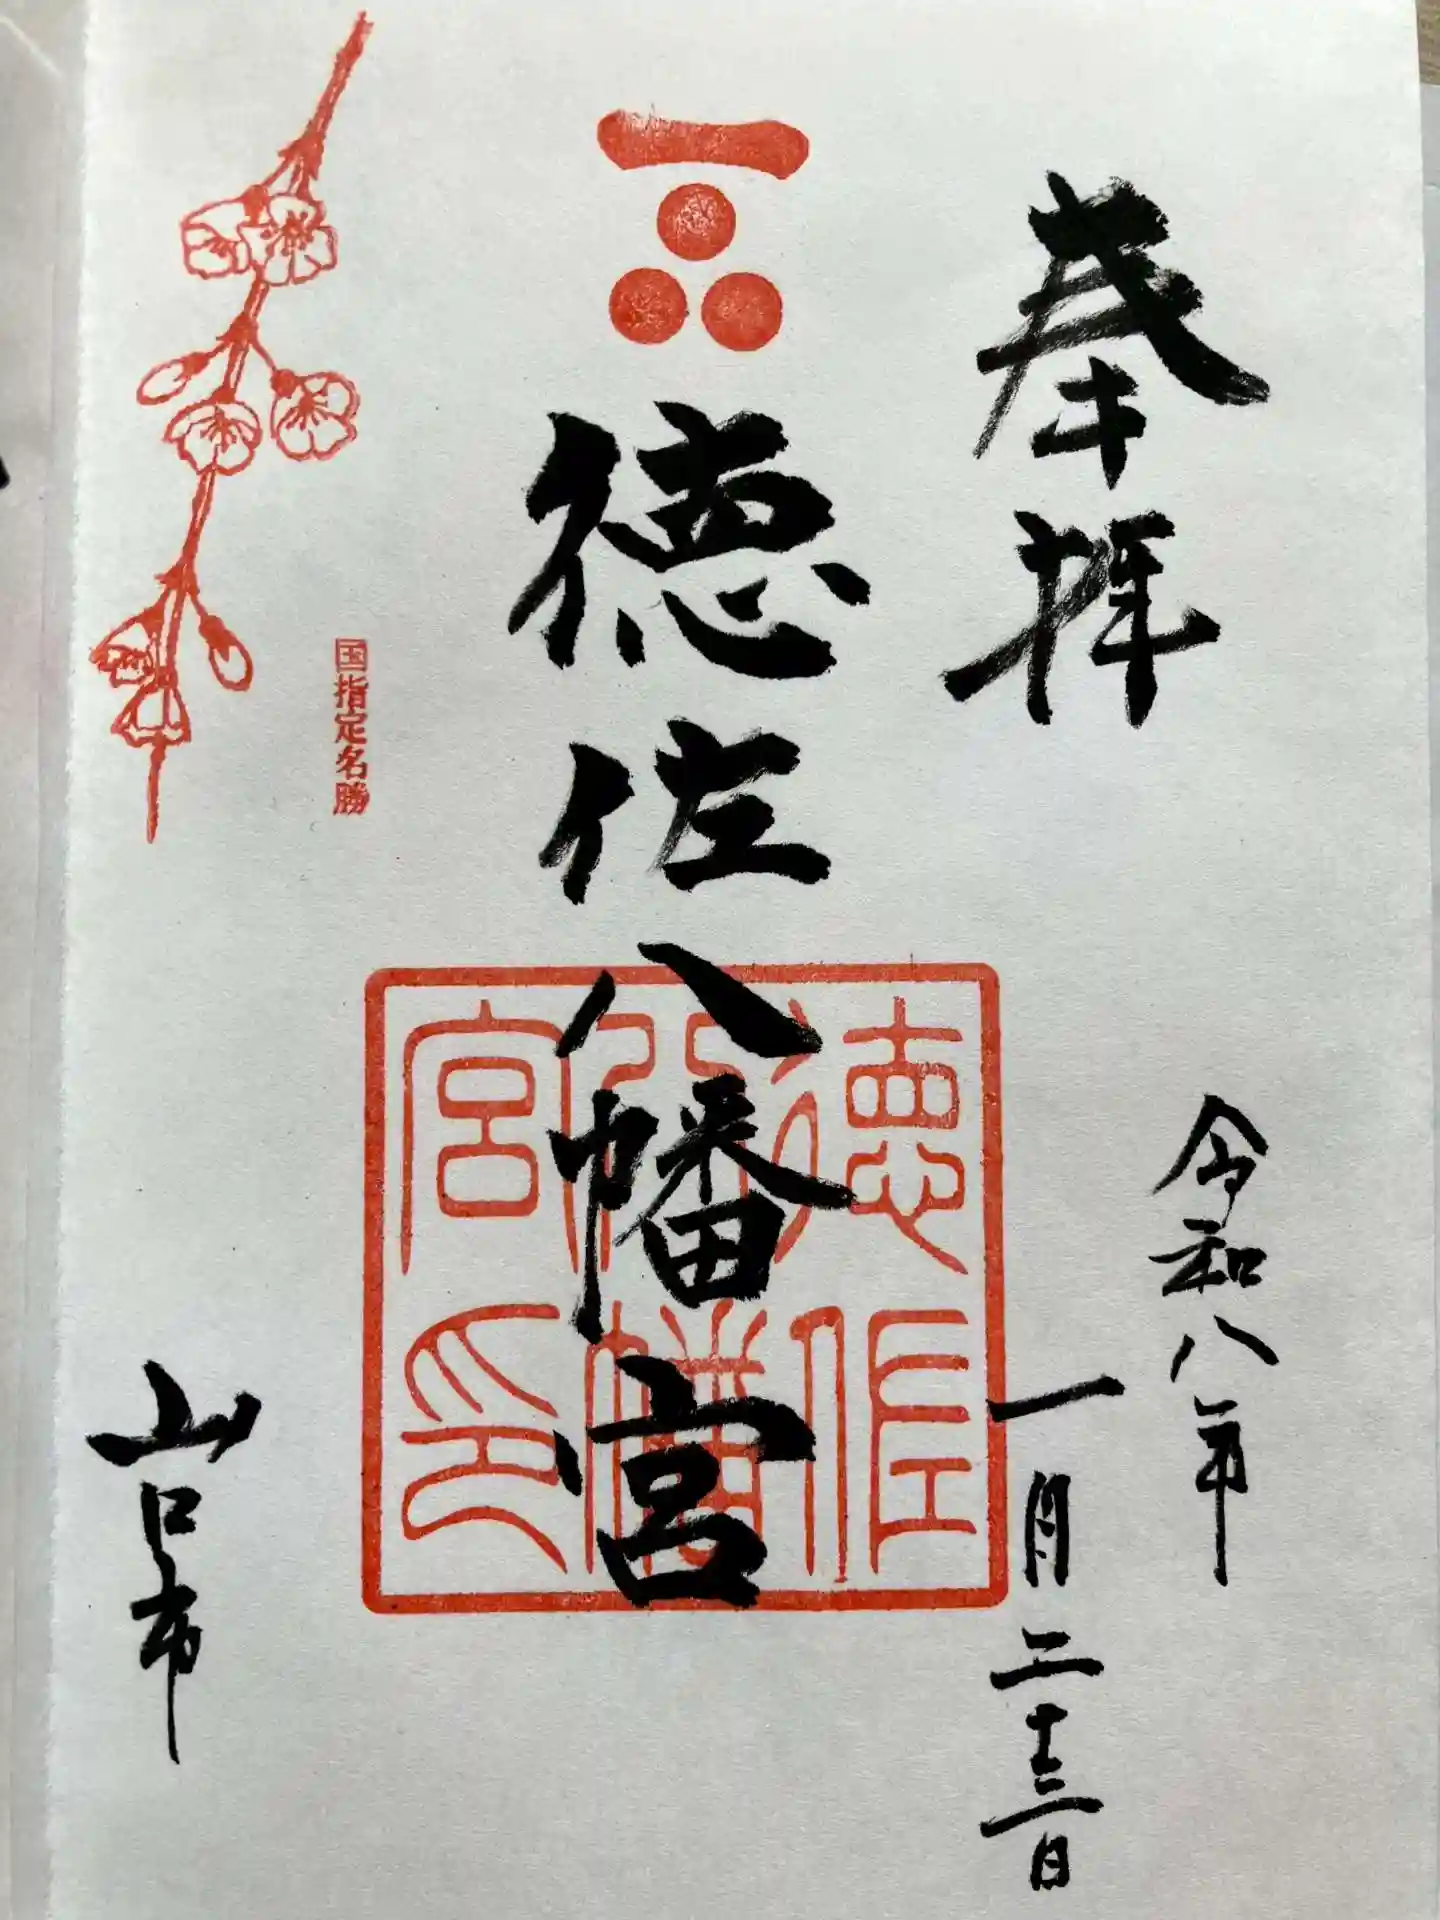 奉拝
令和八年
一月二十三日
徳佐八幡宮
徳佐
八幡
宮印
国指定名勝
山口市